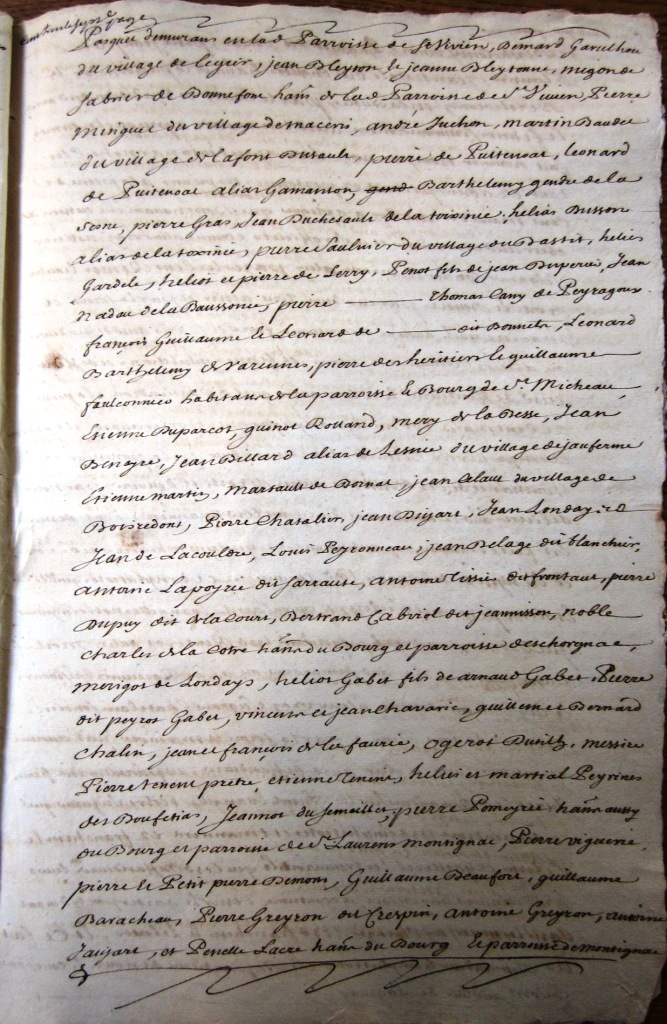 page
Pasquet demurans en lad Parroisse de St Vivien, Bernard
du village de, jean Bleyton & jeanne Bleytonne, migon de
fabrier de Bonnefont hans de lad Parroisse de St Vivien, Pierre
Minguet du village de, andré Juchon, martin Baudet
du village de lafont, pierre de Puitenoat, leonard
de Puitenoat alias Gamanson, Barthelemy gendre de la
pierre Gras, Jean Duchesault de la, helias Busson
alias de la, pierre Saulnier du village du Bastit, helies
Gardele, heliot et pierre de Lerry, Penot fils de jean Duperie, Jean
Nadau de la Baussonie, pierre ——— Thomas Cany de Peyragoux
françois Guillaume & Leonard de ——— dit Bonnet, Leonard
Barthelemy de Varennes, pierre des heritiers & guillaume
faulconnier habitans de la parroisse & Bourg de St Micheau,
Etienne Duparcot, guinot Rolland, mery de la Besse, Jean
Beneyre, Jean Billard alias de Lesnie du village de jauferme
Etienne martin, Martault de Bornat, jean du village de
Boisredont, Pierre Chatalier, jean, Jean Londay
Jean de Lacouldre, Louis Peyronneau, jean Delage dit blanchier,
antoine Lapoyrie dit sarrauste, antoine Tissier dit frontaut, pierre
Dupuy dit de la Court, Bertrand Cabirol dit jeannisson, noble
Charles de la Cotre hans du Bourg et parroisse deschorgnac,
Merigot de Londays, heliot Gabet fils de arnaud Gabet, Pierre
dit peyrot Gabet, vincent et jean Chavarie, guillem et Bernard
Chalin, jean et françois de la faurie, Ogerot Dutilh, messire
Pierre Tenent pretre, etienne Tenent, helies et martial Peyrines
des Boufetias, Jeannot du semeillet, pierre Pomeyrie hans aussy
du Bourg et parroisse de St Laurens montignac, Pierre viguerie,
pierre le Petit pierre Demons, Guillaume Beaufort, guillaume
Baracheau, Pierre Greyron dit Crespin, antoine Greyron, antoine
Jaujart, et Penelle Lacre hans du Bourg & parroisse de montignac